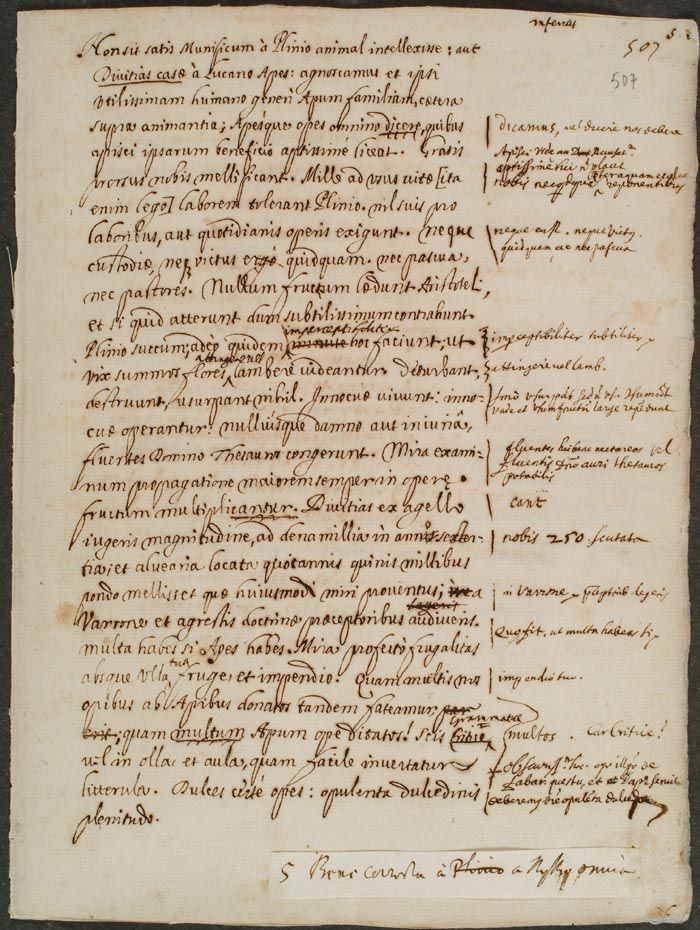 inferius
507
507
Non sit satis Munificum à Plinio animal intellexisse: aut
Divitias casæ à Lucano Apes: agnoscamus et ipsi
utilissimam humano generi Apum familiam, cætera
supra animantia; Apesque opes omnino dicere, quibus
apisci ipsarum beneficio aptissimè liceat. Gratis
prorsus nobis mellificant. Mille ad usus vitæ [ita
enim lego] laborem tolerant Plinio. nil suis pro
laboribus, aut quotidianis operis exigunt. neque
custodiæ, neq victus ergò quidquam. nec pascua,
nec pastores. Nullum fructum lædunt Aristoteli,
et si quid atterunt dum subtilissimum contrahunt
imperceptibiliter
Plinio succum; adeo quidem minutè hoc faciunt; ut
attingere vel
vix summos flores, lambere videantur. deturbant,
destruunt, usurpant nihil. Innocuæ vivunt: inno-
cuæ operantur: nulliusque damno aut iniuriâ,
fluentes Domino Thesauros congerunt. Mira exami-
num propagatione maiorem semper in opere
fructum multiplicantur. Divitias ex agello
iugeris magnitudine, ad dena millia in annos sexter-
tia; et alvearia locata quotannis quinis millibus
pondo mellis; et quæ huiusmodi miri proventus; à
Varrone et agrestis doctrinæ præceptoribus audiveris.
multa habes si Apes habes. Mira profectò frugalitas
absque ulla tua fruge, et impendio. Quam multis nos
opibus ab Apibus donatos tandem fateamur,
Grammatice
quam multum Apum ope ditatos! Scis Critice
vel in olla, et aula, quam facile invertatur
litterula. Dulces certè opes: opulenta dulcedinis
plenitudo.
dicamus, vel ducere nos debere
nobis
neque est. neque victus
quidquam ac nec pascua
imperceptibiliter subtiliter
attingere vel lamb.
fluentes hisce nectareos vel
fluentis auri thesauros
potabilis
cant
nobis 250. scutata
à Varrone
Quo fit, ut multa habeas si
impendio tuo.
multos. Cur Critice?
debere opulenta
5 Bene correcta à Plinio a omnia